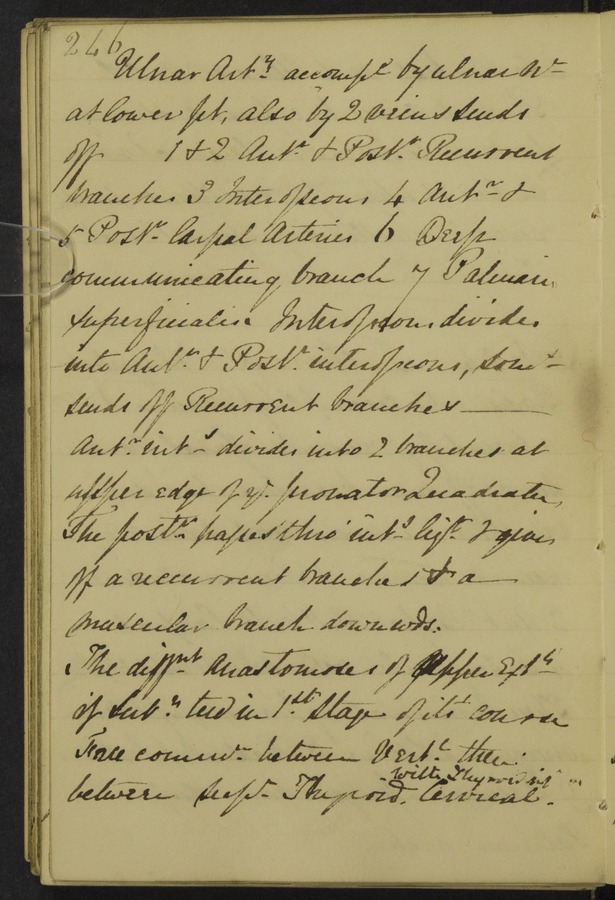 246
Ulnar Art.y accomp.d by ulnar N.
at lower pt, also by 2 veins sends
off 1 & 2 Ant.r & Post.r Recurrent
branches 3 Interosseous 4 Ant.r &
5 Post.r Carpal Arteries 6 Deep
communicating branch 7 Palmaris
superficialis. Interosseous divides
into Ant.r & Post.r interosseous,
sends off Recurrent branches —
Ant.r int.s divides into 2 branches at
upper edge of y.e pronator Quadratus,
The post.r passes thro' int.s lig.t & gives
off a recurrent branches & a
muscular branch downwds.
The diff.nt anastomoses of upper Ext.y
if Sub.n tied in 1st Stage of its course
Free commn. between Vert.l then
between sup.r Thyroid. Cervical.
with Thyroid inf.